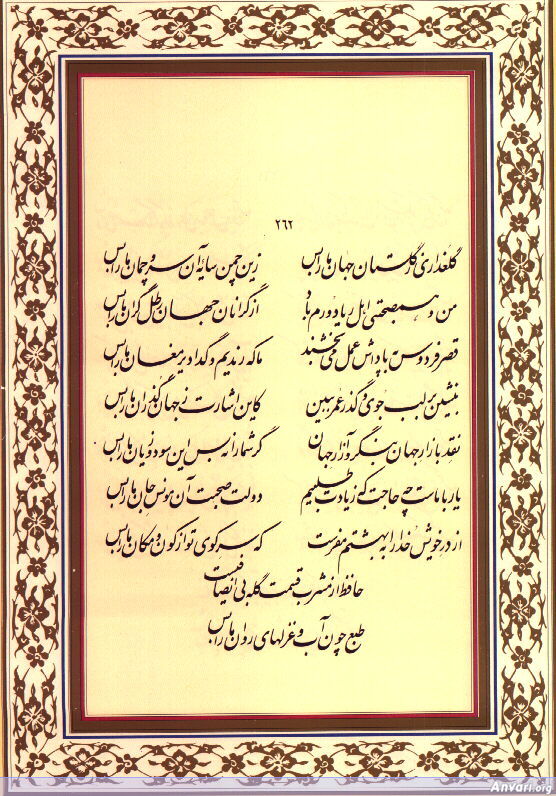 ۲۶۲
گلعذاری ز گلستان جهان ما را بس زین چمن سایهٔ آن سرو چمان ما را بس
من و همصحبتی اهل ریا دورم باد از گرانان جهان رطل گران ما را بس
قصر فردوس به پاداش عمل می‌بخشند ما که رندیم و گدا دیر مغان ما را بس
بنشین بر لب جوی و گذر عمر ببین کاین اشارت ز جهان گذران ما را بس
نقد بازار جهان بنگر و آزار جهان گر شما را نه بس این سود و زیان ما را بس
یار با ماست چه حاجت که زیادت طلبیم دولت صحبت آن مونس جان ما را بس
از در خویش خدا را به بهشتم مفرست که سر کوی تو از کون و مکان ما را بس
حافظ از مشرب قسمت گله بی انصافیست
طبع چون آب و غزلهای روان ما را بس
Anvari.org